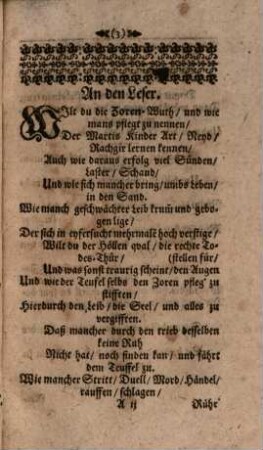 (3)
An den Leser.
WIlt du die Zoren-Wuth/ und wie
mans pflegt zu nennen/
Der Martis Kinder Art/ Neyd/
Rachgir lernen kennen/
Auch wie daraus erfolg viel Sünden/
Laster/ Schand/
Und wie sich mancher bring/ umbs Leben/
in den Sand.
Wie manch geschwächter Leib krum̃ und gebo-
gen lige/
Der sich in eyfersucht mehrmals hoch verstige/
Wilt du der Höllen qval/ die rechte To-
des-Thür/ (stellen für/
Und was sonst traurig scheint/ den Augen
Und wie der Teufel selbs den Zoren pfleg' zu
stifften/
Hierdurch den Leib/ die Seel/ und alles zu
vergifften.
Daß mancher durch den trieb desselben
keine Ruh
Nicht hat/ noch finden kan/ und fährt
dem Teuffel zu.
Wie mancher Stritt/ Duell/ Mord/ Händel/
rauffen/ schlagen/
A ij Rühr